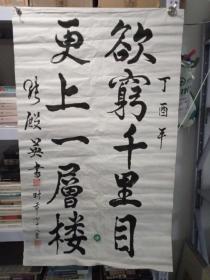 丁酉年
欲窮千里目
更上一層楼
张殿英書